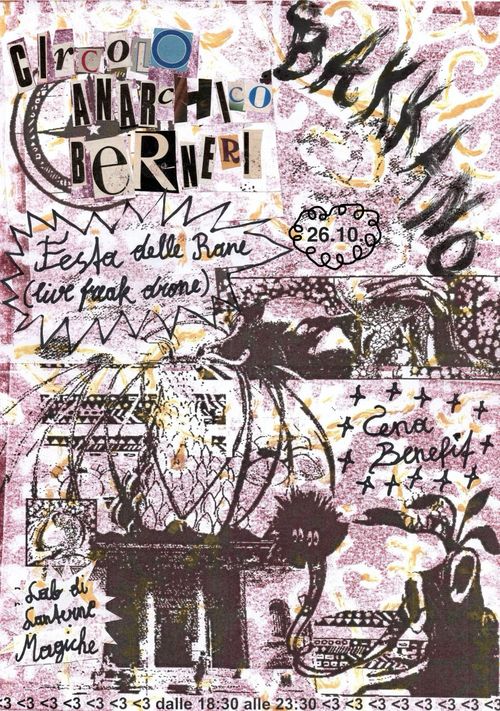 CIrcolO
ANARcHIcO
BeRNERI
BAKKANO
Festa delle Rane
(live freak drone)
26.10
Cena
Benefit
Lab di
Lanterne
Magiche
<3 <3 <3 <3 <3 <3 <3 dalle 18:30 alle 23:30 <3 <3 <3 <3 <3 <3 <3